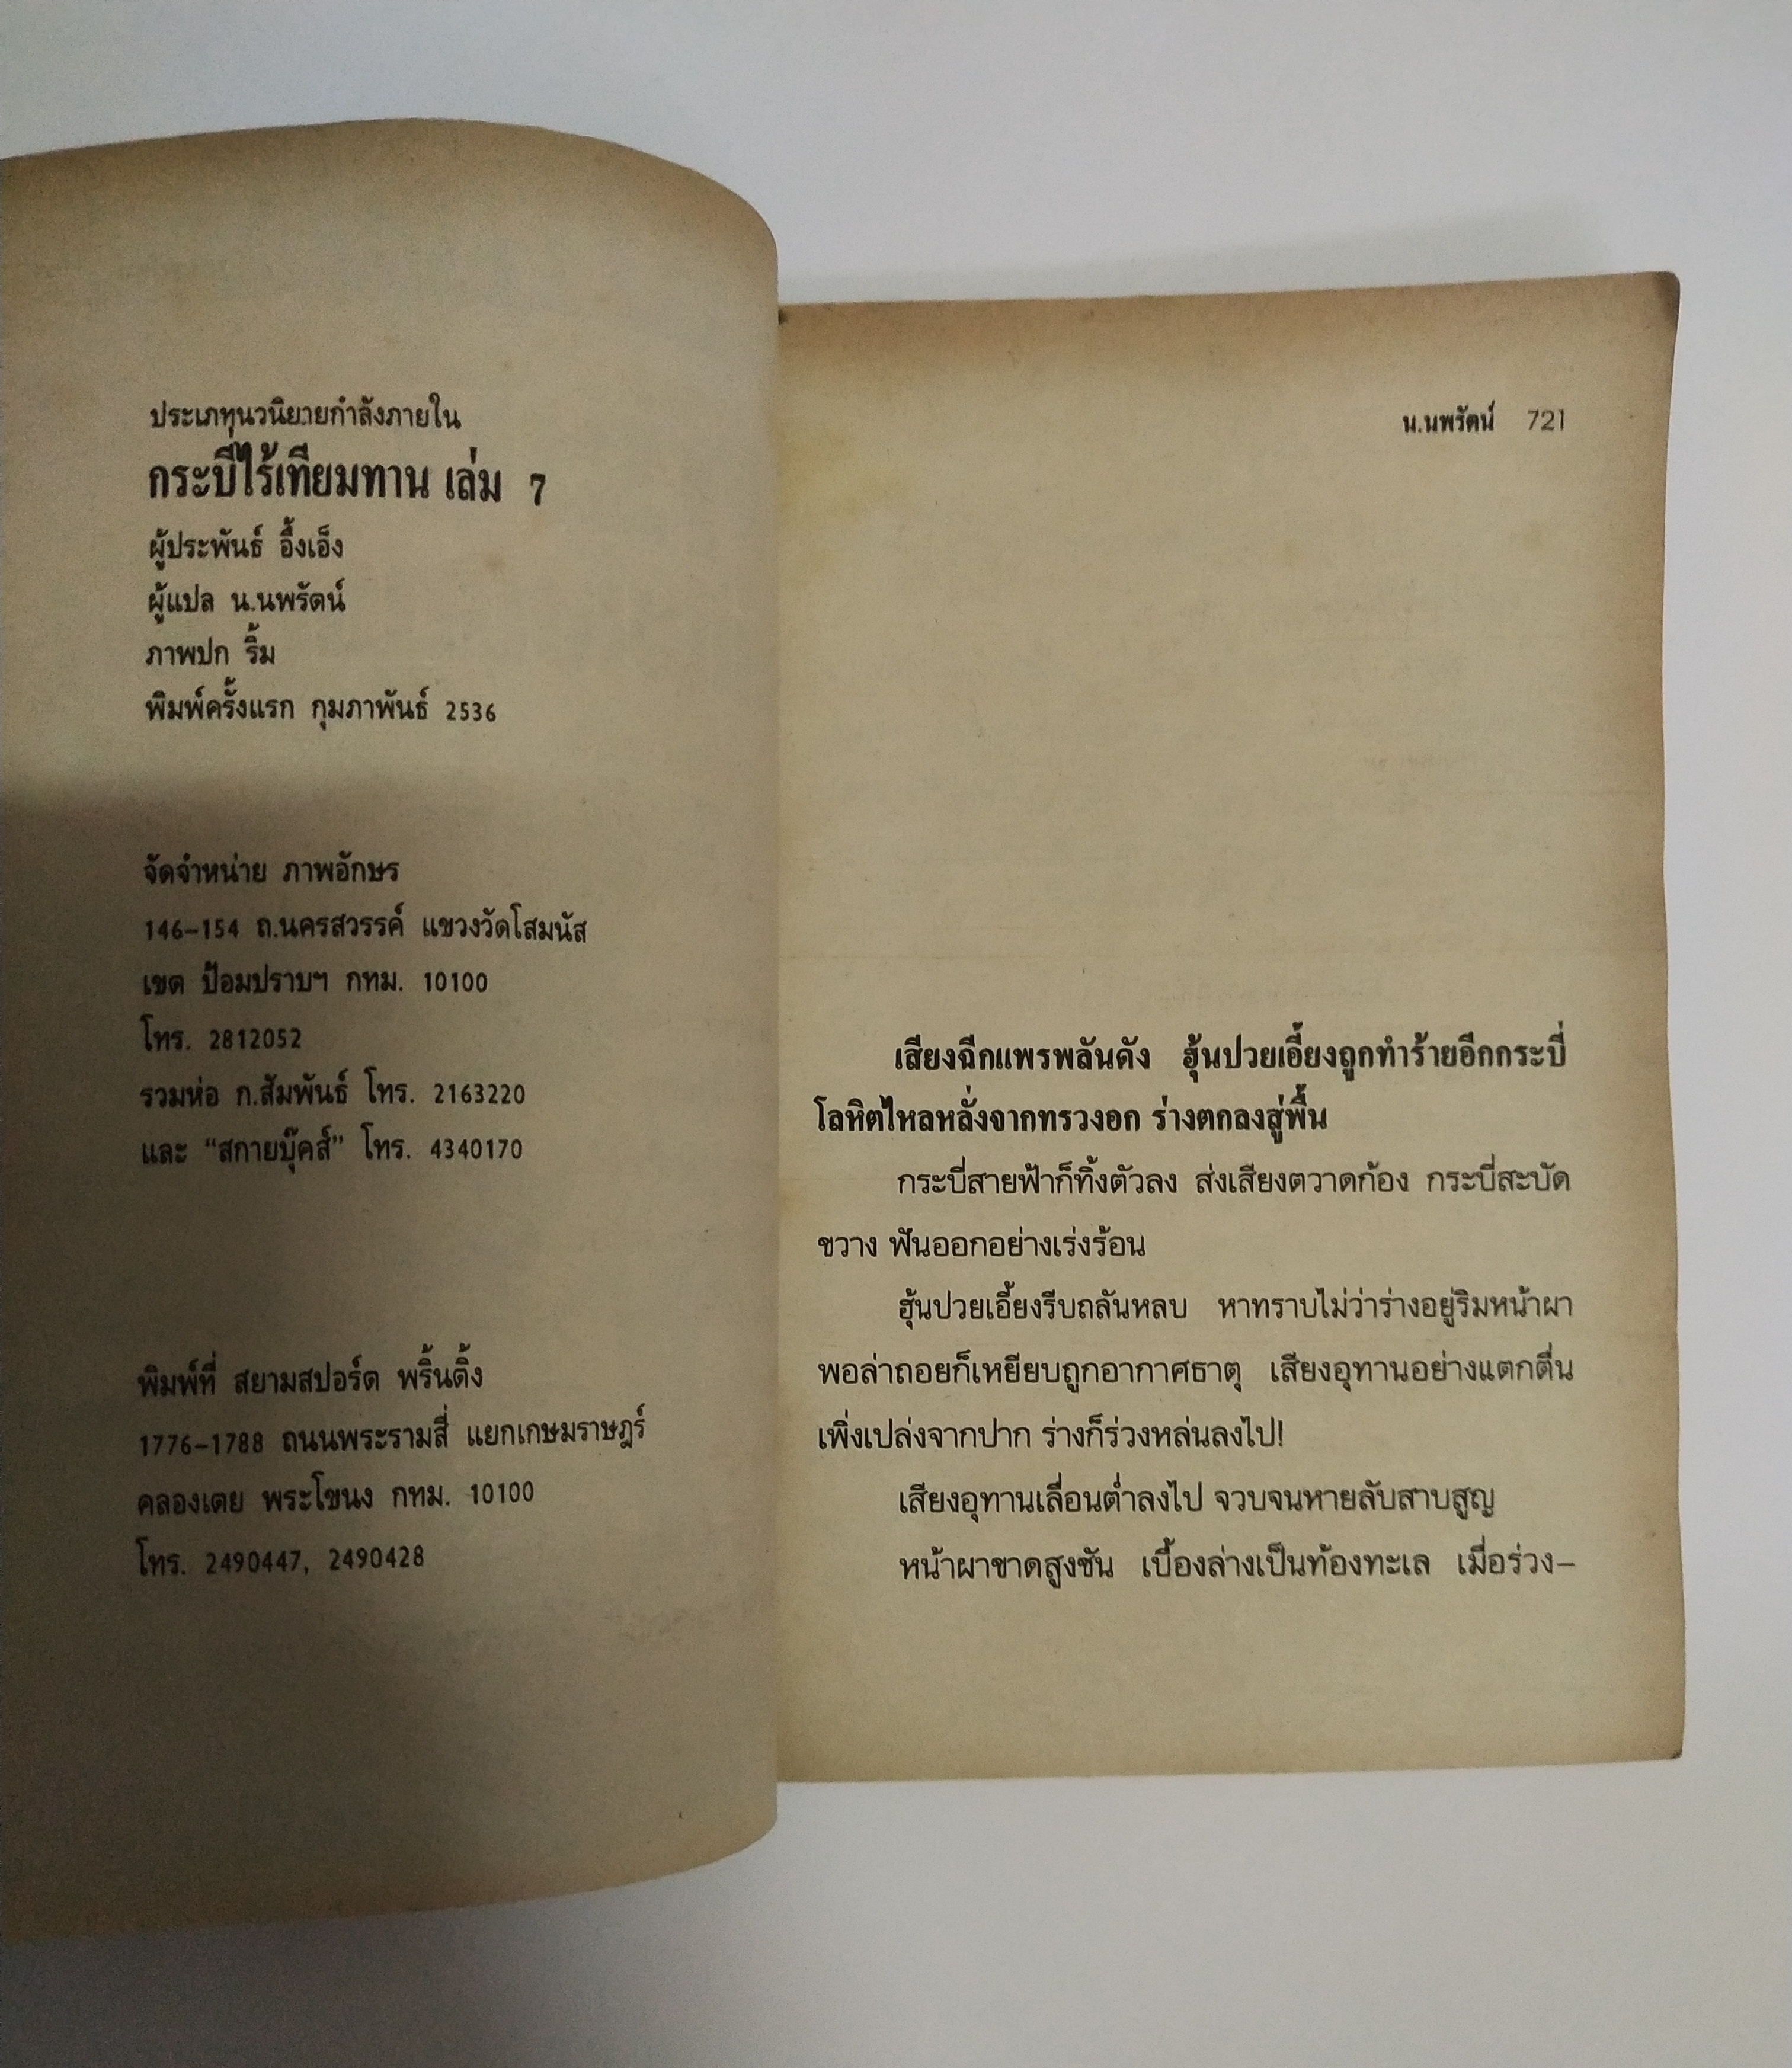 ประเภทนวนิยายกำลังภายใน
กระบี่ไร้เทียมทาน เล่ม 7
ผู้ประพันธ์ อึ้งเอ็ง
ผู้แปล น.นพรัตน์
ภาพปก ริ้ม
พิมพ์ครั้งแรก กุมภาพันธ์ 2536
จัดจำหน่าย ภาพอักษร
146-154 ถ.นครสวรรค์ แขวงวัดโสมนัส
เขต ป้อมปราบฯ กทม. 10100
โทร. 2812052
รวมห่อ ก.สัมพันธ์ โทร. 2163220
และ “สกายบุ๊คส์” โทร. 4340170
พิมพ์ที่ สยามสปอร์ต พริ้นติ้ง
1776-1788 ถนนพระรามสี่ แยกเกษมราษฎร์
คลองเตย พระโขนง กทม. 10100
โทร. 2490447, 2490428
น.นพรัตน์ 721
เสียงฉีกแพรพลันดัง ฮุ้นปวยเอี้ยงถูกทำร้ายอีกกระบี่
โลหิตไหลหลั่งจากทรวงอก ร่างตกลงสู่พื้น
กระบี่สายฟ้าก็ทิ้งตัวลง ส่งเสียงตวาดก้อง กระบี่สะบัด
ขวาง ฟันออกอย่างเร่งร้อน
ฮุ้นปวยเอี้ยงรีบถลันหลบ หาทราบไม่ว่าร่างอยู่ริมหน้าผา
พอล่าถอยก็เหยียบถูกอากาศธาตุ เสียงอุทานอย่างแตกตื่น
เพิ่งเปล่งจากปาก ร่างก็ร่วงหล่นลงไป!
เสียงอุทานเลื่อนต่ำลงไป จวบจนหายลับสาบสูญ
หน้าผาขาดสูงชัน เบื้องล่างเป็นท้องทะเล เมื่อร่วง-